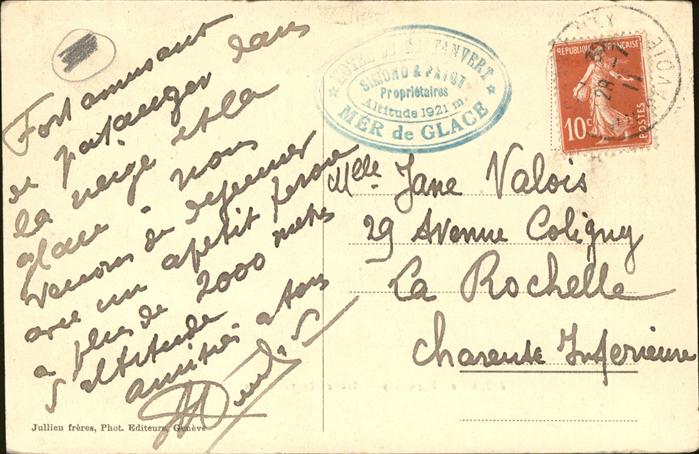 Fort amusant
de patauger dans
la neige et la
glace, nous
venons de dejeuner
avec un apetit feroce
a plus de 2000 metres
d'altitude
amitiés a tous
HOTEL DU MONTANVERT
SIMOND & PAYOT
Propriétaires
Altitude 1921 m.
MER de GLACE
REPUBLIQUE FRANÇAISE
10c
POSTES
Mlle Jane Valois
29 Avenue Coligny
La Rochelle
Charente Inferieure
Jullien frères, Phot. Editeurs, Genève